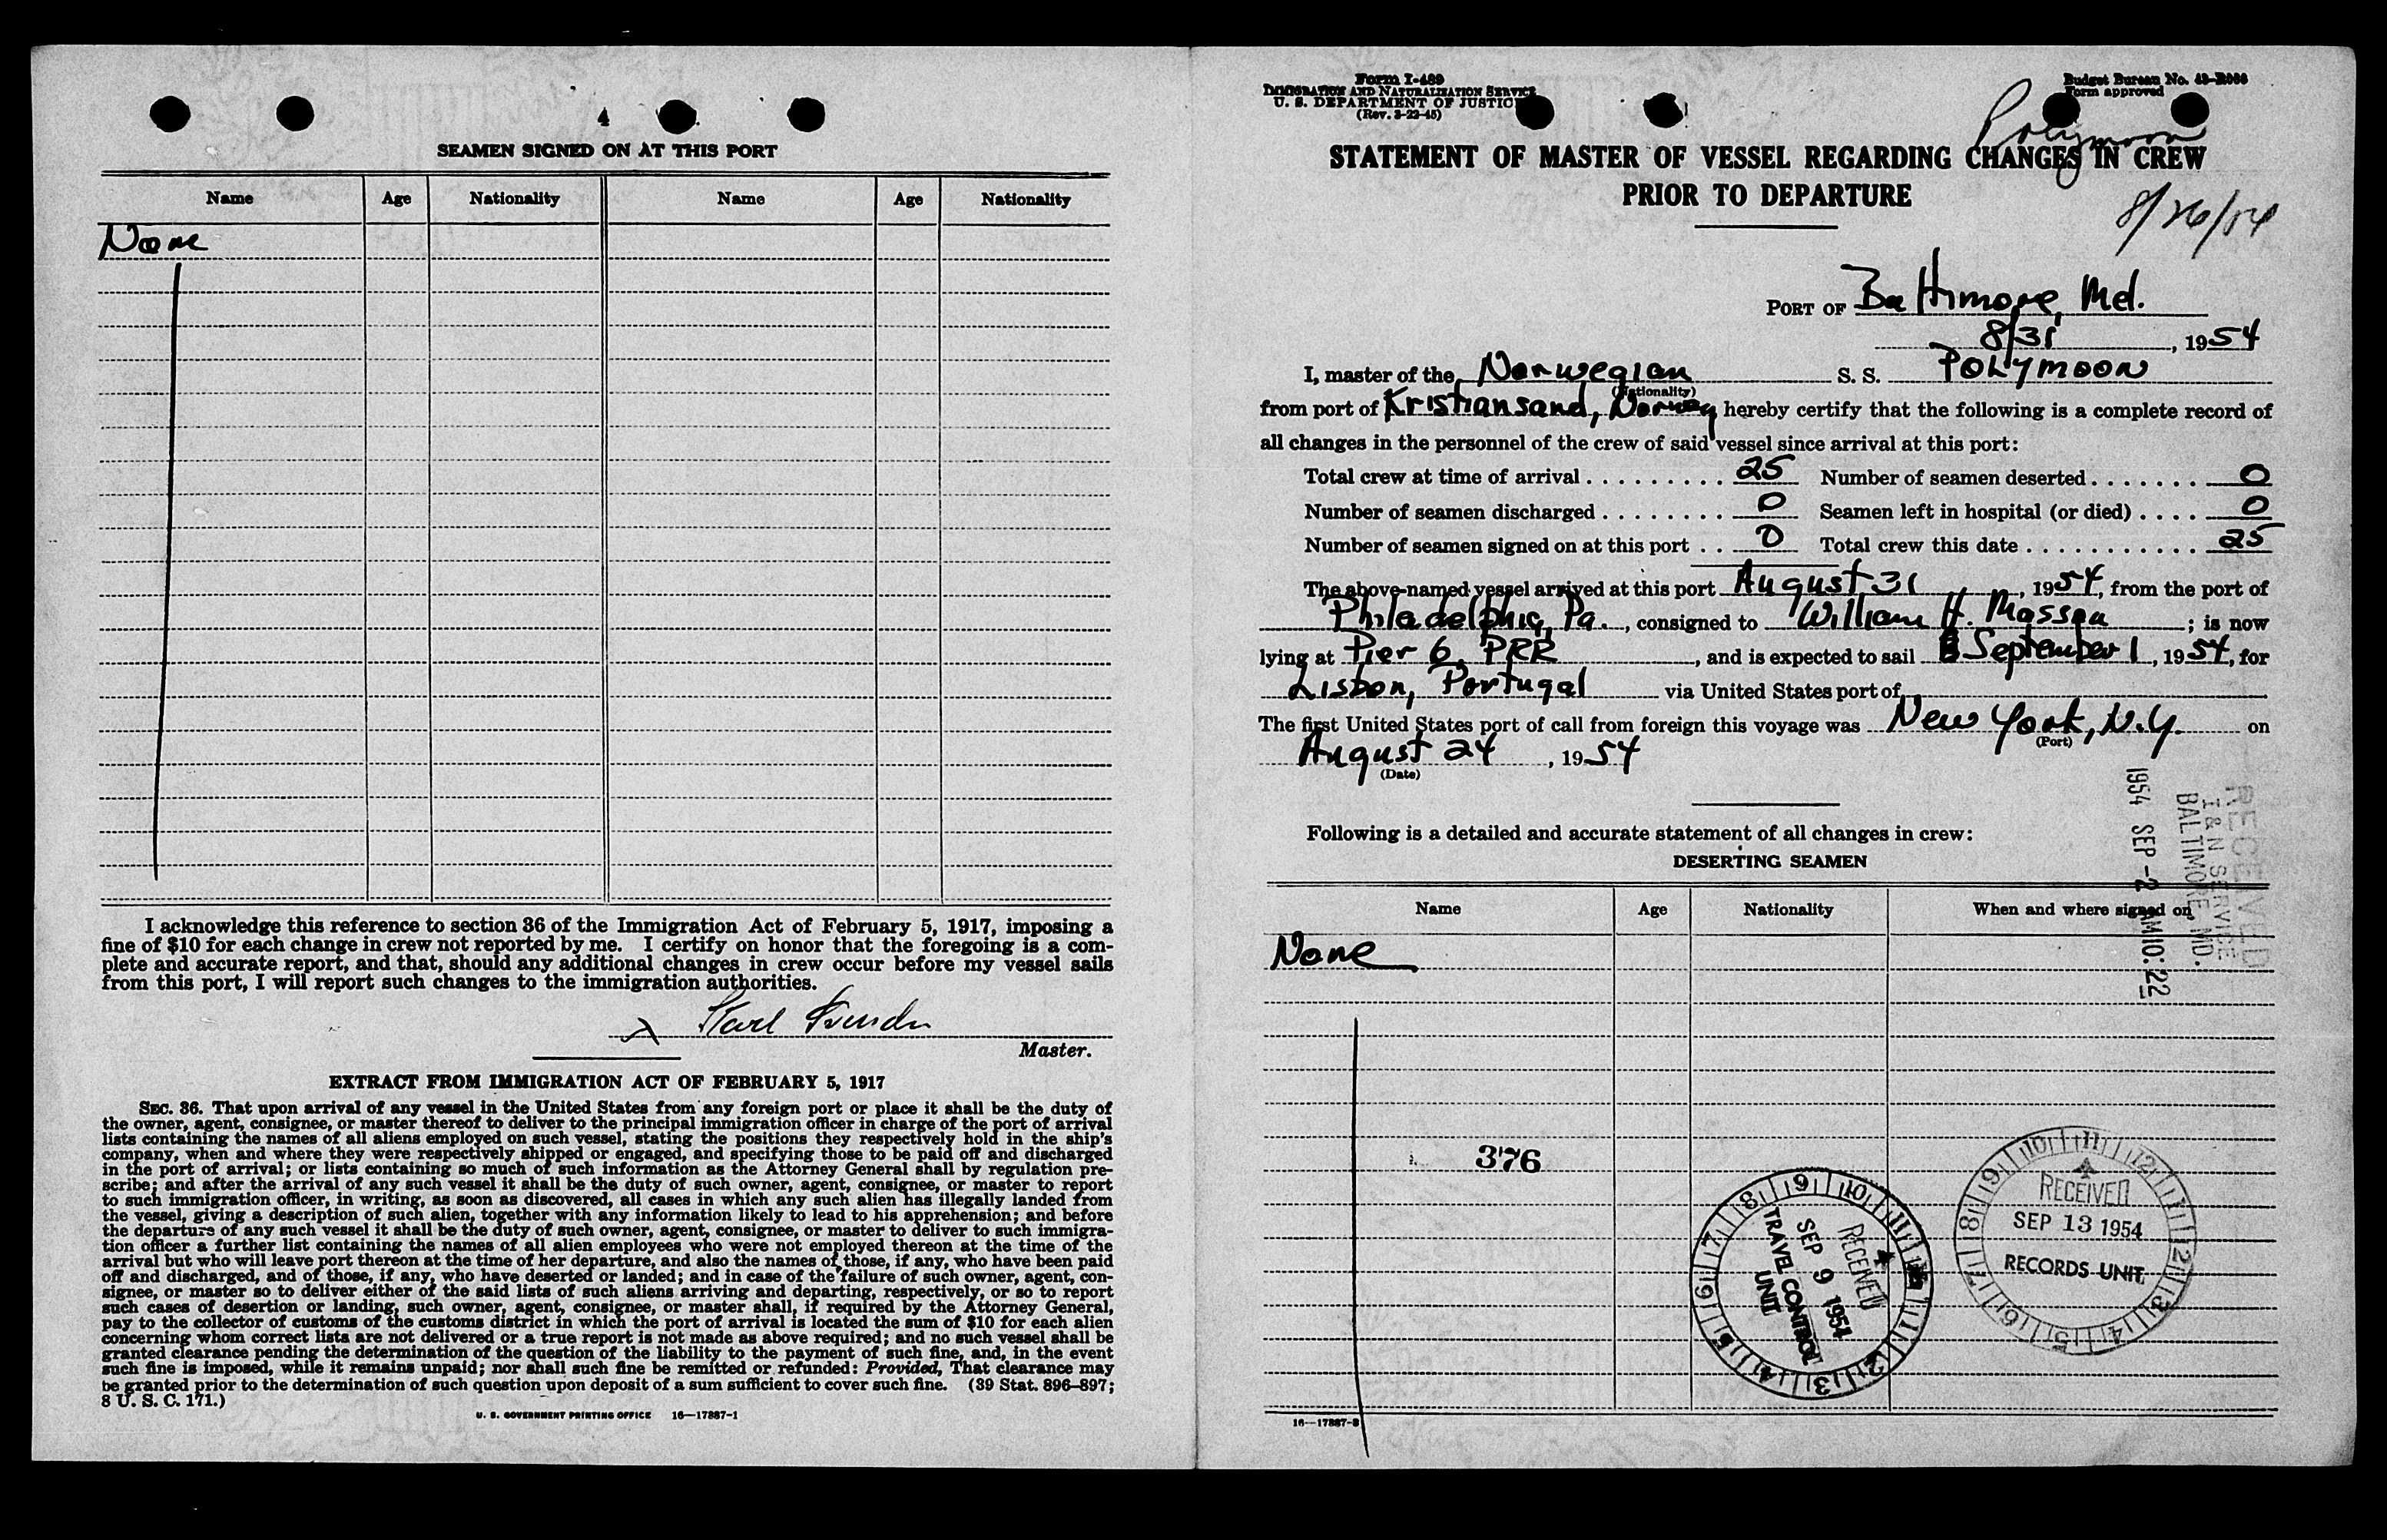 4
SEAMEN SIGNED ON AT THIS PORT
Name Age Nationality Name Age Nationality
None
I acknowledge this reference to section 36 of the Immigration Act of February 5, 1917, imposing a
fine of $10 for each change in crew not reported by me. I certify on honor that the foregoing is a com-
plete and accurate report, and that, should any additional changes in crew occur before my vessel sails
from this port, I will report such changes to the immigration authorities.
Master.
EXTRACT FROM IMMIGRATION ACT OF FEBRUARY 5, 1917
SEC. 36. That upon arrival of any vessel in the United States from any foreign port or place it shall be the duty of
the owner, agent, consignee, or master thereof to deliver to the principal immigration officer in charge of the port of arrival
lists containing the names of all aliens employed on such vessel, stating the positions they respectively hold in the ship's
company, when and where they were respectively shipped or engaged, and specifying those to be paid off and discharged
in the port of arrival; or lists containing so much of such information as the Attorney General shall by regulation pre-
scribe; and after the arrival of any such vessel it shall be the duty of such owner, agent, consignee, or master to report
to such immigration officer, in writing, as soon as discovered, all cases in which any such alien has illegally landed from
the vessel, giving a description of such alien, together with any information likely to lead to his apprehension; and before
the departure of any such vessel it shall be the duty of such owner, agent, consignee, or master to deliver to such immigra-
tion officer a further list containing the names of all alien employees who were not employed thereon at the time of the
arrival but who will leave port thereon at the time of her departure, and also the names of those, if any, who have been paid
off and discharged, and of those, if any, who have deserted or landed; and in case of the failure of such owner, agent, con-
signee, or master so to deliver either of the said lists of such aliens arriving and departing, respectively, or so to report
such cases of desertion or landing, such owner, agent, consignee, or master shall, if required by the Attorney General,
pay to the collector of customs of the customs district in which the port of arrival is located the sum of $10 for each alien
concerning whom correct lists are not delivered or a true report is not made as above required; and no such vessel shall be
granted clearance pending the determination of the question of the liability to the payment of such fine, and, in the event
such fine is imposed, while it remains unpaid; nor shall such fine be remitted or refunded: Provided, That clearance may
be granted prior to the determination of such question upon deposit of a sum sufficient to cover such fine. (39 Stat. 896-897;
8 U. S. C. 171.)
U. S. GOVERNMENT PRINTING OFFICE 16—17887-1
Form I-489
IMMIGRATION AND NATURALIZATION SERVICE
U. S. DEPARTMENT OF JUSTICE
(Rev. 3-22-45)
Budget Bureau No. 43-R086
Form approved
Polymoon
STATEMENT OF MASTER OF VESSEL REGARDING CHANGES IN CREW
PRIOR TO DEPARTURE
8/26/54
PORT OF Baltimore, Md.
8/31, 1954
I, master of the Norwegian S. S. POLYMOON
(Nationality)
from port of Kristiansand, Norway hereby certify that the following is a complete record of
all changes in the personnel of the crew of said vessel since arrival at this port:
Total crew at time of arrival . . . . . . . . . 25 Number of seamen deserted . . . . . . . 0
Number of seamen discharged . . . . . . . . 0 Seamen left in hospital (or died) . . . . 0
Number of seamen signed on at this port . . 0 Total crew this date . . . . . . . . . . . 25
The above-named vessel arrived at this port August 31, 1954, from the port of
Philadelphia, Pa., consigned to William H. Masson; is now
lying at Pier 6, PRR, and is expected to sail September 1, 1954, for
Lisbon, Portugal via United States port of
The first United States port of call from foreign this voyage was New York, N.Y. on
(Port)
August 24, 1954
(Date)
RECEIVED
I & N SERVICE
BALTIMORE, MD.
1954 SEP -2 AM 10: 22
Following is a detailed and accurate statement of all changes in crew:
DESERTING SEAMEN
Name Age Nationality When and where signed on
None
376
RECEIVED
SEP 9 1954
TRAVEL CONTROL
UNIT
RECEIVED
SEP 13 1954
RECORDS UNIT
16—17887-3